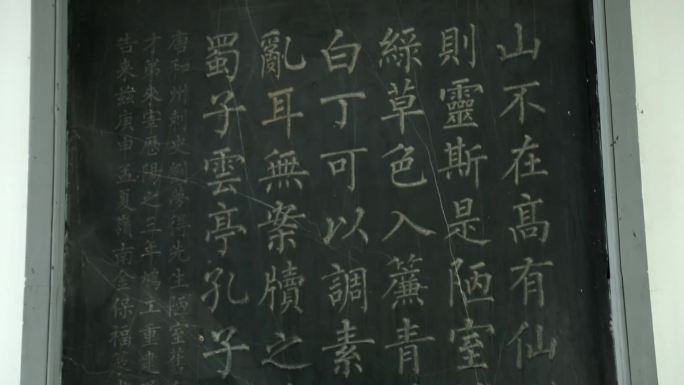 山不在高有仙
則靈斯是陋室
綠草色入簾青
白丁可以調素
亂耳無案牘之
蜀子雲亭孔子
唐和州刺史劉夢得先生陋室舊
才弟來宰歷陽之三年鳩工重建
告來茲庚申孟夏嶺南金保福